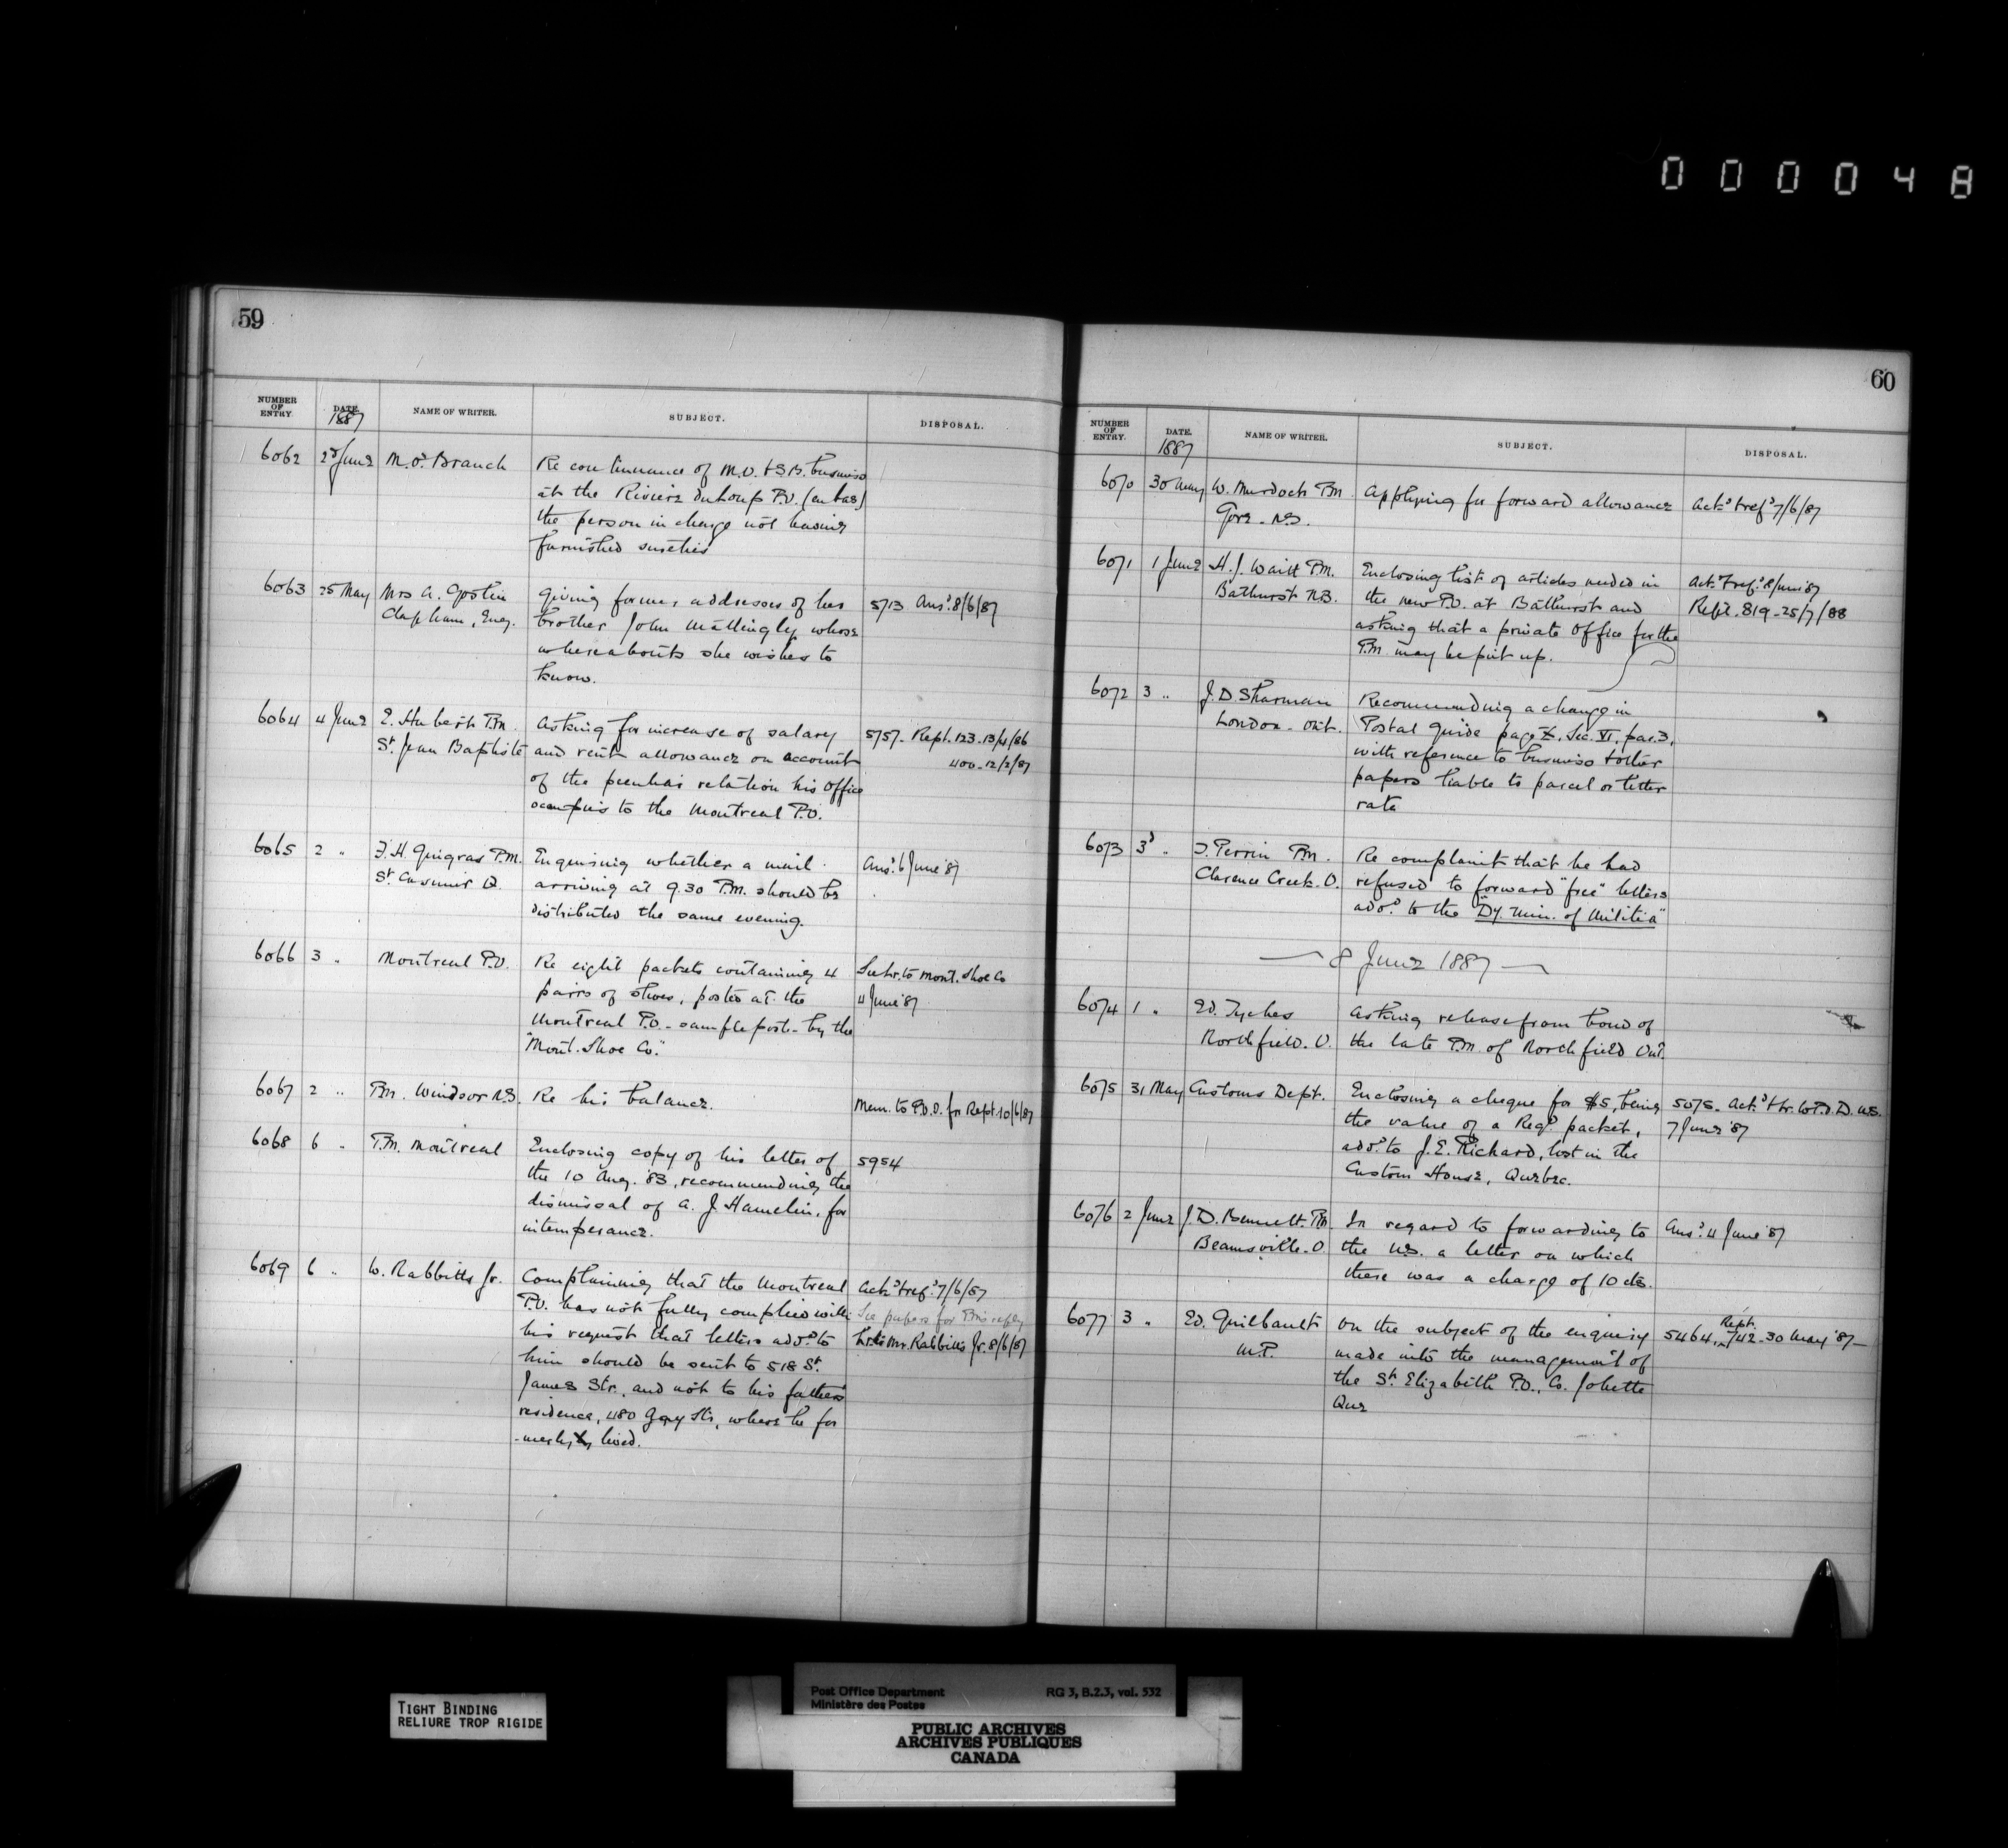 000048
59
NUMBER OF ENTRY. DATE. NAME OF WRITER. SUBJECT. DISPOSAL.
1887
6062 2d June M.O. Branch Re continuance of M.O. & S.B. business
at the Riviere du Loup P.O. (en bas)
the person in charge not having
furnished sureties
6063 25 May Mrs A. Giving former addresses of her 5713 Ansd. 8/6/87
Clapham, Eng. brother John Mattingly whose
whereabouts she wishes to
know.
6064 4 June E. Hubert P.M. Asking for increase of salary 5757. Rept. 123. 13/4/86
St. Jean Baptiste and rent allowance on account 400. 12/2/87
of the peculiar relation his office
occupies to the Montreal P.O.
6065 2 " P.M. Enquiring whether a mail Ansd. 6 June '87
St. Casimir Q. arriving at 9.30 P.M. should be
distributed the same evening.
6066 3 " Montreal P.O. Re eight packets containing 4 See lr. to Mont. Shoe Co
pairs of shoes, posted at the 4 June '87
Montreal P.O. - sample post - by the
"Mont. Shoe Co."
6067 2 " P.M. Windsor N.S. Re his balance. Mem. to P.O.I. for Rept. 10/6/87
6068 6 " P.M. Montreal Enclosing copy of his letter of 5954
the 10 Aug. '83, recommending the
dismissal of A. J. Hamelin, for
intemperance.
6069 6 " W. Rabbitts Jr. Complaining that the Montreal Ackd. & refd. 7/6/87
P.O. has not fully complied with See papers for P.M's reply
his request that letters addd. to Lr. to Mr. Rabbitts Jr. 8/6/87
him should be sent to 518 St.
James Str., and not to his father's
residence, 480 Guy Str, where he for
-merly lived.
60
NUMBER OF ENTRY. DATE. NAME OF WRITER. SUBJECT. DISPOSAL.
1887
6070 30 May W. Murdoch P.M. Applying for forward allowance Ackd. & refd. 7/6/87
Gore - N.S.
6071 1 June H. J. P.M. Enclosing list of articles needed in Ackd. & refd. 8/June '87
Bathurst N.B. the new P.O. at Bathurst and Rept. 819 - 25/7/88
asking that a private office for the
P.M. may be put up.
6072 3 " J. D. Sharman Recommending a change in
London - Ont. Postal Guide page X, Sec. VI, par. 3,
with reference to business & other
papers liable to parcel or letter
rate
6073 3d " Perrin P.M. Re complaint that he had
Clarence Creek. O. refused to forward "free" letters
addd. to the "Dy. Min. of Militia"
8 June 1887
6074 1 " Ed. Tyches Asking release from bond of
Northfield. O. the late P.M. of Northfield Ont.
6075 31 May Customs Dept. Enclosing a cheque for $5, being 5075. Ackd. & lr. to P.O.D. U.S.
the value of a Regd. packet, 7 June '87
addd. to J. E. Richard, lost in the
Custom House, Quebec.
6076 2 June J. D. Bennett P.M. In regard to forwarding to Ansd. 4 June '87
Beamsville - O. the U.S. a letter on which
there was a charge of 10 cts.
6077 3 " Ed. Guilbault On the subject of the enquiry 5464, Rept. 742 - 30 May '87 -
M.P. made into the management of
the St. Elizabeth P.O., Co. Joliette
Que
TIGHT BINDING
RELIURE TROP RIGIDE
Post Office Department RG 3, B.2.3, vol. 532
Ministère des Postes
PUBLIC ARCHIVES
ARCHIVES PUBLIQUES
CANADA